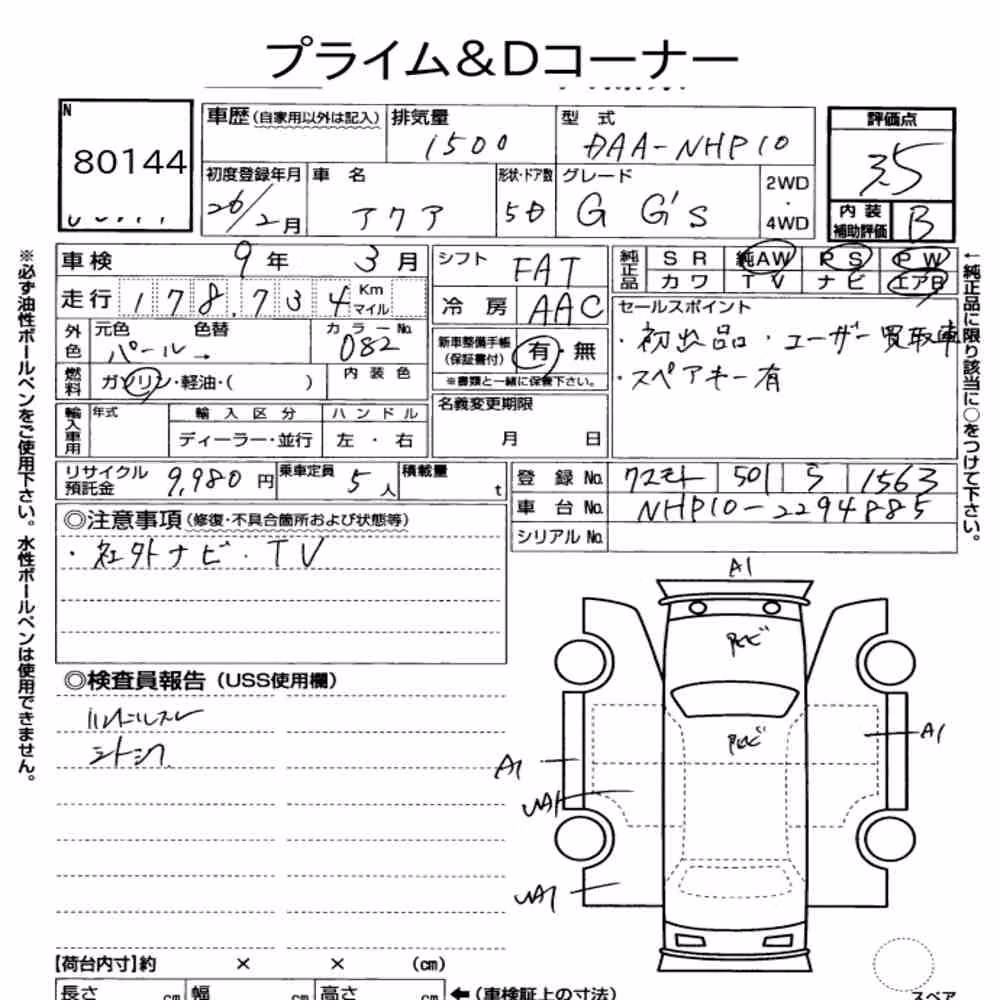 プライム&Dコーナー
N
80144
車歴 (自家用以外は記入)
排気量
1500
型 式
DAA-NHP10
評価点
3.5
初度登録年月
26/2月
車 名
アクア
形状・ドア数
5D
グレード
G G's
2WD
・
4WD
内 装
補助評価
B
車検 9年 3月
シフト FAT
純正品
SR 純AW PS PW
カワ TV ナビ エアB
走行 178,734 Km マイル
冷 房 AAC
外色
元色 色替
パール →
カラーNo.
082
新車整備手帳
(保証書付)
有・無
※書類と一緒に保管下さい。
セールスポイント
・初出品・ユーザー買取車
・スペアキー有
燃料
ガソリン・軽油・( )
内 装 色
輸入車用
年式
輸 入 区 分
ハンドル
ディーラー・並行
左 ・ 右
名義変更期限
月 日
リサイクル
預託金
9,980円
乗車定員
5人
積載量
t
登 録 No.
501 1563
車 台 No.
NHP10-2294885
シリアルNo.
◎注意事項 (修復・不具合箇所および状態等)
・社外ナビ・TV
◎検査員報告 (USS使用欄)
ハンドルスレ
A1
A1
A1
UA1
UA1
【荷台内寸】約 × × (cm)
長さ cm 幅 cm 高さ cm ←(車検証上の寸法)
スペア
※必ず油性ボールペンをご使用下さい。水性ボールペンは使用できません。
←純正品に限り該当に○をつけて下さい。